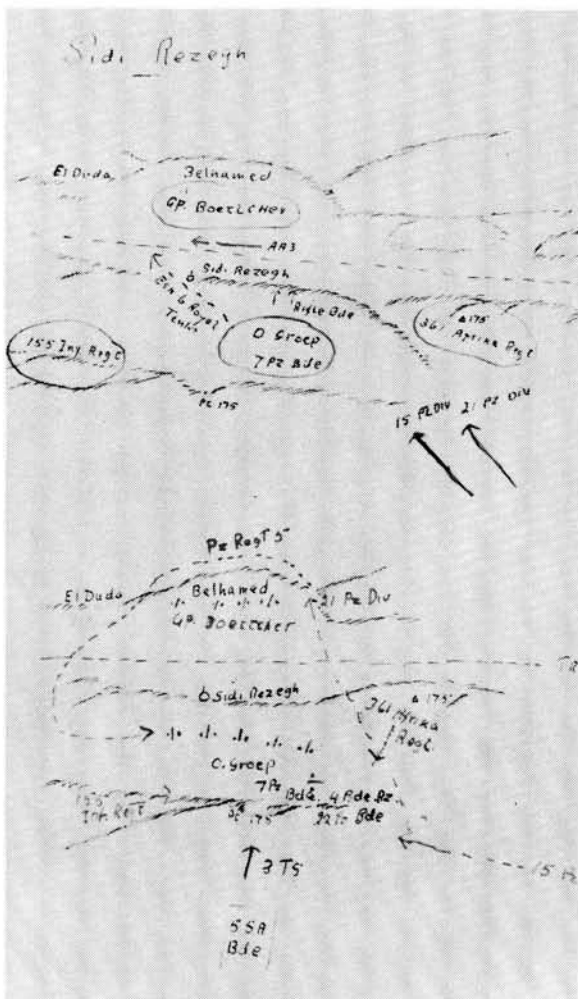 Sidi Rezegh
El Duda
Belhamed
Gp. Boettcher
AA3
Sidi Rezegh
6 Royal
Tanks
Rifle Bde
O Groep
7 Pz Bde
▵175
361 Afrika Regt
155 Inf Regt
Pt 175
15 Pz Div 21 Pz Div
Pz Regt 5
El Duda
Belhamed
Gp. Boettcher
21 Pz Div
TR
Sidi Rezegh
▵175
361 Afrika
Regt.
O. Groep
7 Pz
Bde. 4 Bde Pz
22 Pz Bde
155
Inf. Regt
Pt 175
15 Pz
3 TS
5 SA
Bde